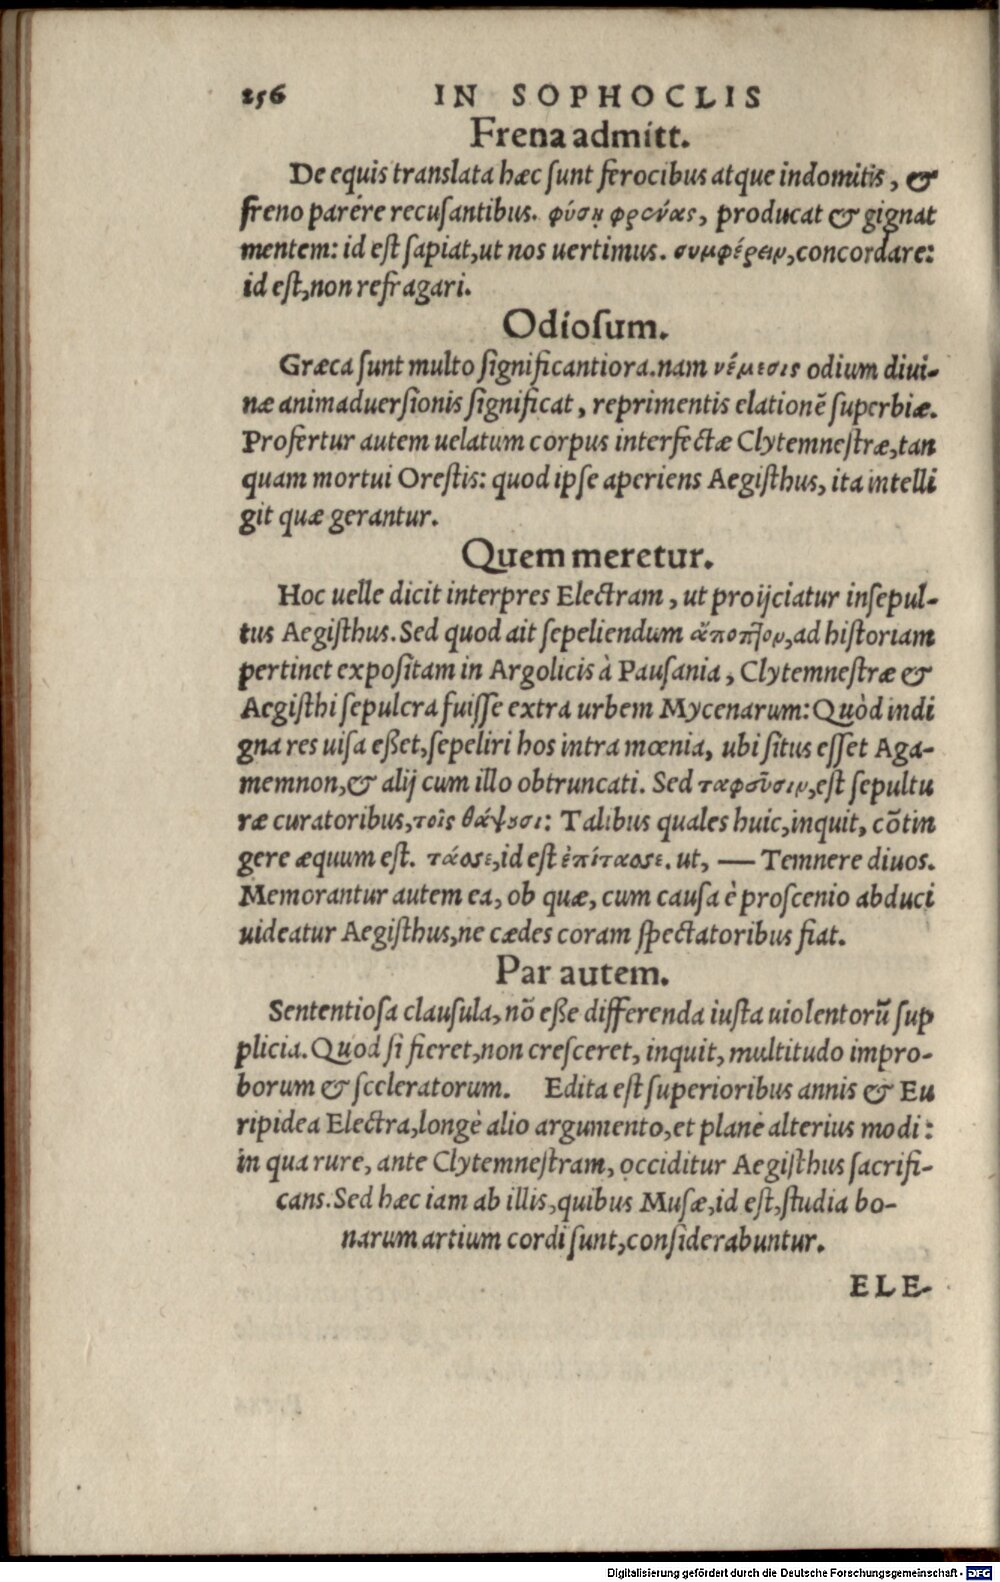 256 IN SOPHOCLIS
Frena admitt.
De equis translata hæc sunt ferocibus atque indomitis, &
freno parére recusantibus. φύσῃ φρενας, producat & gignat
mentem: id est sapiat, ut nos uertimus. συμφέρειν, concordare:
id est, non refragari.
Odiosum.
Græca sunt multo significantiora. nam νέμεσις odium diui-
næ animaduersionis significat, reprimentis elationē superbiæ.
Profertur autem uelatum corpus interfectæ Clytemnestræ, tan
quam mortui Orestis: quod ipse aperiens Aegisthus, ita intelli
git quæ gerantur.
Quem meretur.
Hoc uelle dicit interpres Electram, ut proijciatur insepul-
tus Aegisthus. Sed quod ait sepeliendum ἄποπτον, ad historiam
pertinet expositam in Argolicis à Pausania, Clytemnestræ &
Aegisthi sepulcra fuisse extra urbem Mycenarum: Quòd indi
gna res uisa eßet, sepeliri hos intra mœnia, ubi situs esset Aga-
memnon, & alij cum illo obtruncati. Sed ταφεῦσιν, est sepultu
ræ curatoribus, τοῖς θάψουσι: Talibus quales huic, inquit, cōtin
gere æquum est. τάσσε, id est ἐπίτασσε. ut, — Temnere diuos.
Memorantur autem ea, ob quæ, cum causa è proscenio abduci
uideatur Aegisthus, ne cædes coram spectatoribus fiat.
Par autem.
Sententiosa clausula, nō eße differenda iusta uiolentorū sup
plicia. Quod si fieret, non cresceret, inquit, multitudo impro-
borum & sceleratorum. Edita est superioribus annis & Eu
ripidea Electra, longè alio argumento, et planè alterius modi:
in qua rure, ante Clytemnestram, occiditur Aegisthus sacrifi-
cans. Sed hæc iam ab illis, quibus Musæ, id est, studia bo-
narum artium cordi sunt, considerabuntur.
ELE-
Digitalisierung gefördert durch die Deutsche Forschungsgemeinschaft - DFG